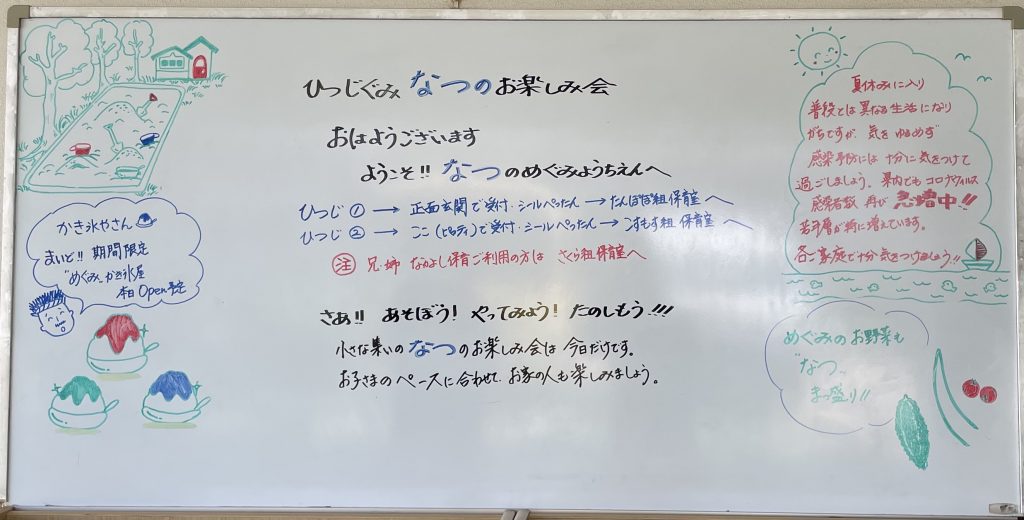 ひつじぐみ なつのお楽しみ会
おはようございます
ようこそ!! なつのめぐみようちえんへ
ひつじ ① → 正面玄関で受付・シールぺったん → たんぽぽ組保育室へ
ひつじ ② → ここ(ピロティ)で受付・シールぺったん → こすもす組保育室へ
注 兄・姉 なかよし保育ご利用の方は さくら組保育室へ
さあ!! あそぼう! やってみよう! たのしもう!!!
小さな集いの なつのお楽しみ会は 今日だけです。
お子さまの ペースに合わせて、お家の人も楽しみましょう。
かき氷やさん
まいど!! 期間限定
"めぐみ かき氷屋
本日 Open予定
夏休みに入り
普段とは異なる生活になり
がちですが、気をゆるめず
感染予防には 十分に気をつけて
過ごしましょう。県内でも コロナウィルス
感染者数 再び 急増中!!
若年層が特に増えています。
各ご家庭で十分気をつけましょう!!
めぐみのお野菜も
"なつ"
まっ盛り!!